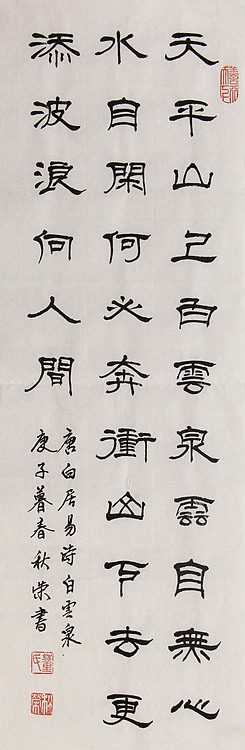 天平山上白雲泉雲自無心
水自閑何必奔衝山下去更
添波浪向人間
唐白居易詩白雲泉
庚子暮春秋榮書